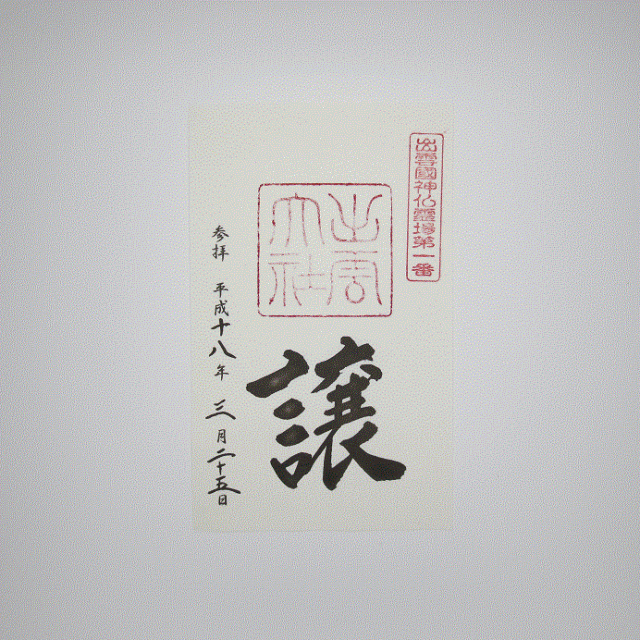 出雲國神仏霊場第一番
出雲
大社
譲
参拝 平成十八年 三月二十五日